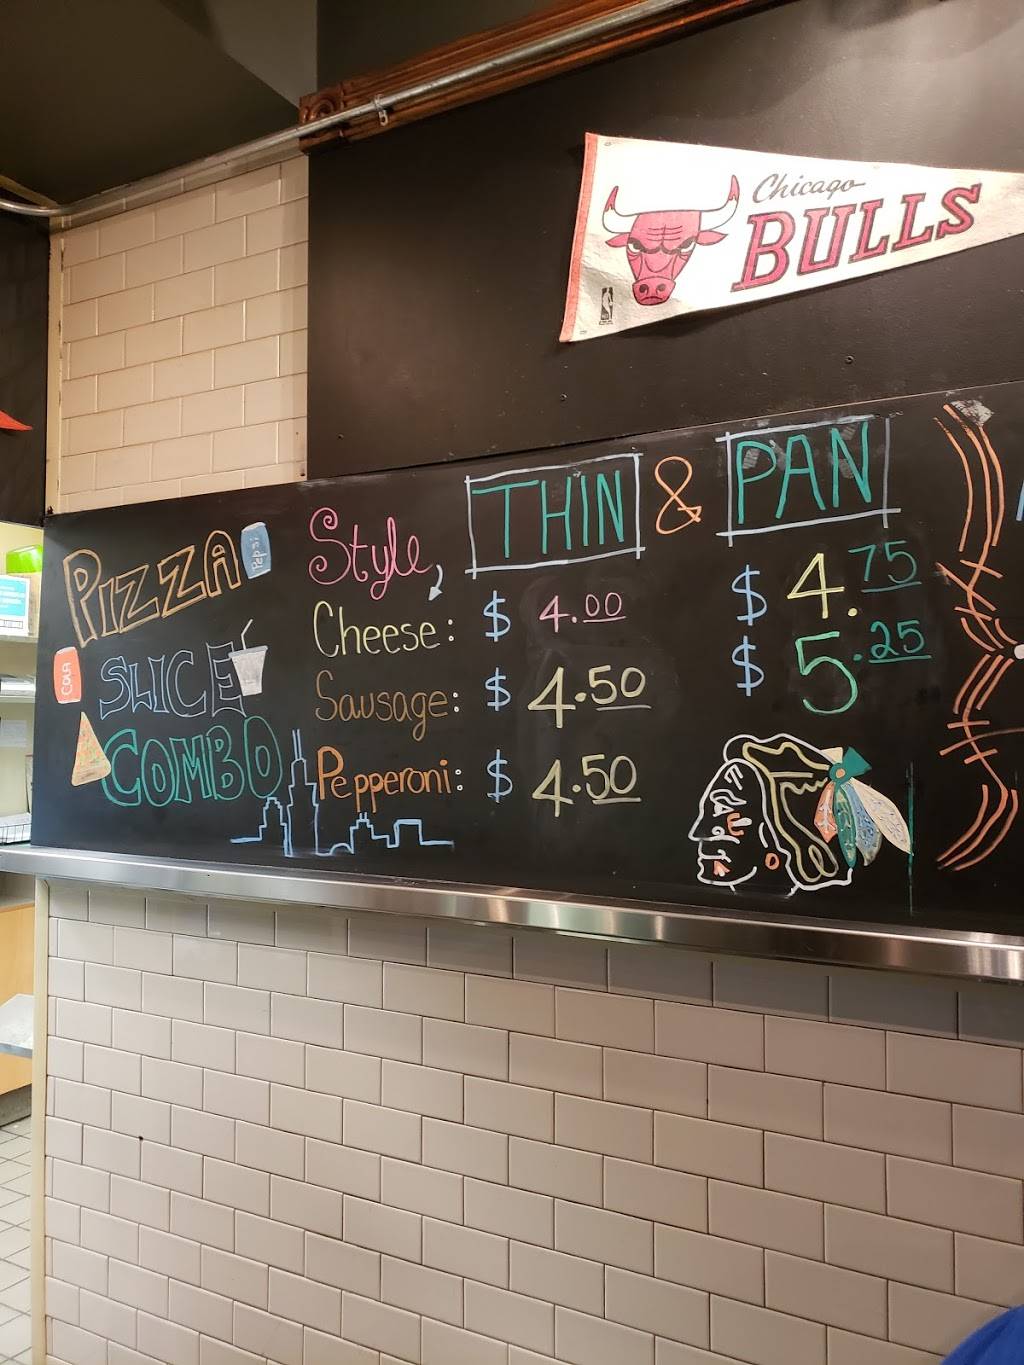 Chicago
BULLS
PIZZA Pepsi
COLA SLICE
COMBO
Style THIN & PAN
Cheese: $ 4.00 $ 4.75
Sausage: $ 4.50 $ 5.25
Pepperoni: $ 4.50